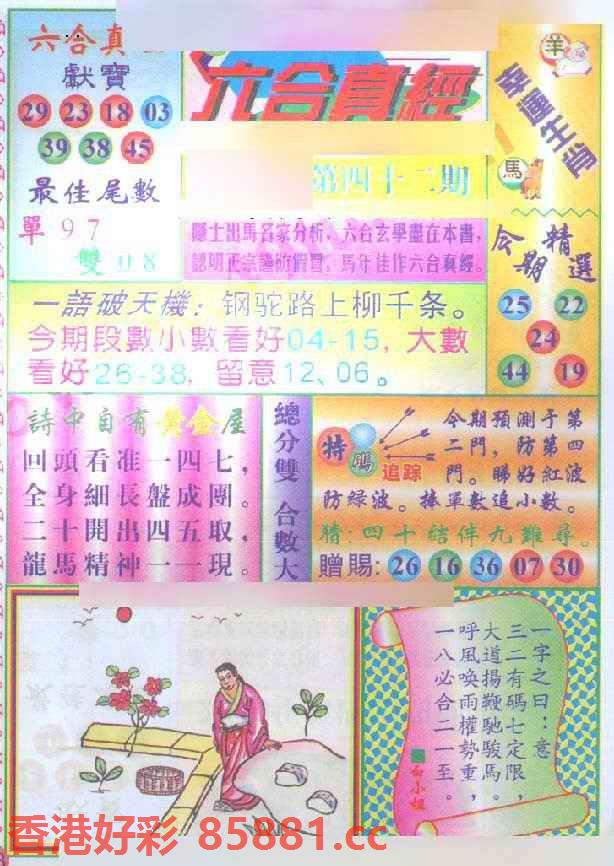 六合真
獻寶
29 23 18 03
39 38 45
最佳尾數
單 97
雙 08
六合真經
第四十二期
隱士出馬名家分析，六合玄學盡在本書，
認明正宗謹防假冒，馬年佳作六合真經。
羊
幸運生肖
馬
今期精選
25 22
24
44 19
一語破天機：钢驼路上柳千条。
今期段數小數看好04-15，大數
看好26-38，留意12、06。
詩中自有黃金屋
回頭看准一四七，
全身細長盤成團。
二十開出四五取，
龍馬精神一一現。
總分雙 合數大
特碼
追踪
今期預測予第
二門，防第四
門。睇好紅波
防绿波。捧單數追小數。
猜:四十结伴九難尋。
贈賜: 26 16 36 07 30
一字之曰：意
三二有碼七定限，
大道揚鞭馳駿馬。
呼風喚雨權勢重，
一八必合二一至。
白小姐
香港好彩 85881.cc